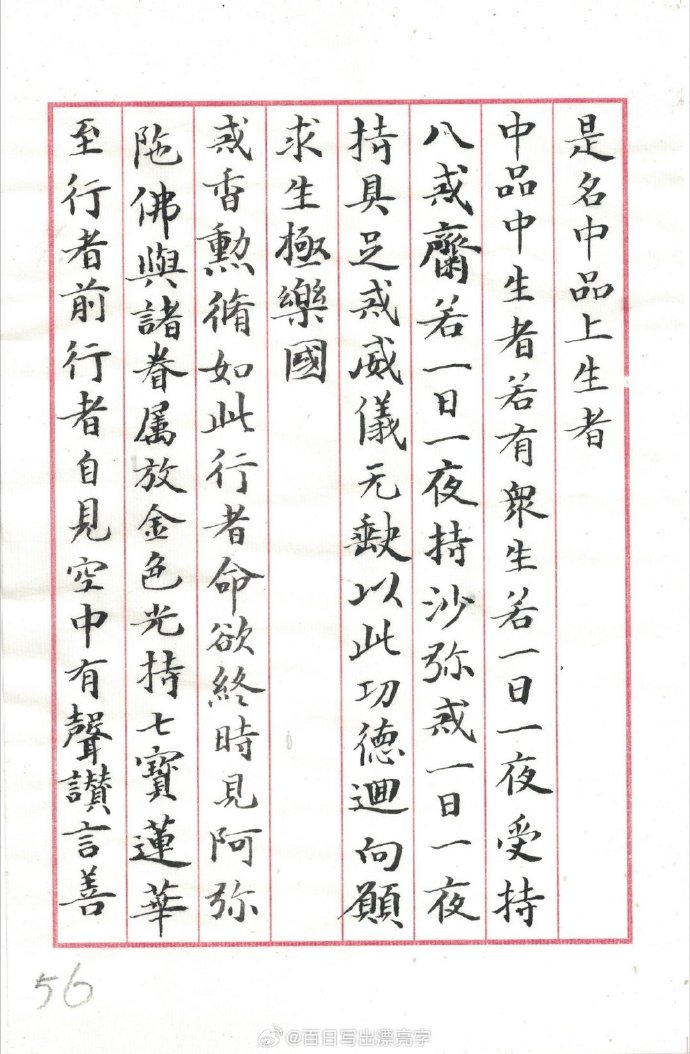 是名中品上生者
中品中生者若有衆生若一日一夜受持
八戒齋若一日一夜持沙弥戒一日一夜
持具足戒威儀无缺以此功德迴向願
求生極樂國
戒香勲脩如此行者命欲終時見阿弥
陁佛與諸眷属放金色光持七寶蓮華
至行者前行者自見空中有聲讃言善
56
@百日写出漂亮字